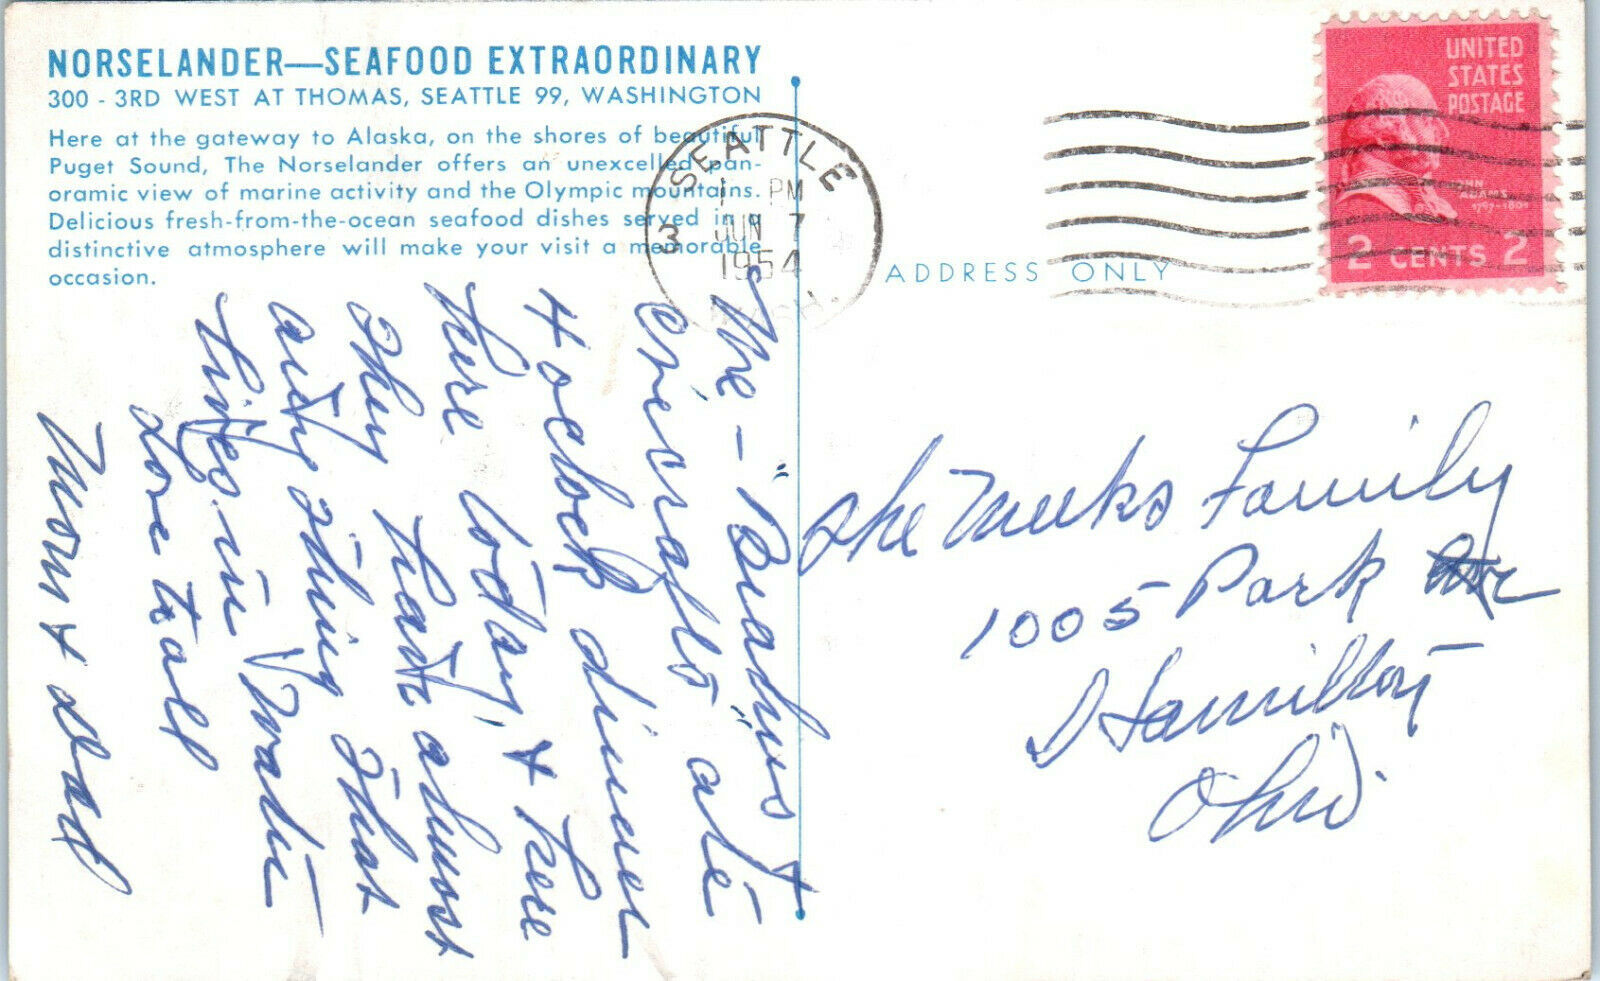 NORSELANDER—SEAFOOD EXTRAORDINARY
300 - 3RD WEST AT THOMAS, SEATTLE 99, WASHINGTON
Here at the gateway to Alaska, on the shores of beautiful
Puget Sound, The Norselander offers an unexcelled pan-
oramic view of marine activity and the Olympic mountains.
Delicious fresh-from-the-ocean seafood dishes served in a
distinctive atmosphere will make your visit a memorable
occasion.
SEATTLE
1 PM
JUN 7
1954
3
WASH.
UNITED
STATES
POSTAGE
JOHN
ADAMS
1797-1801
2 CENTS 2
ADDRESS ONLY
We - "Beachus" +
ate
4 oclock dinner
here today, + here
they have almost
any thing that
lives in water
Love to all
Mom + Dad
The Meeks Family
1005 Park Ave
Hamilton
Ohio.